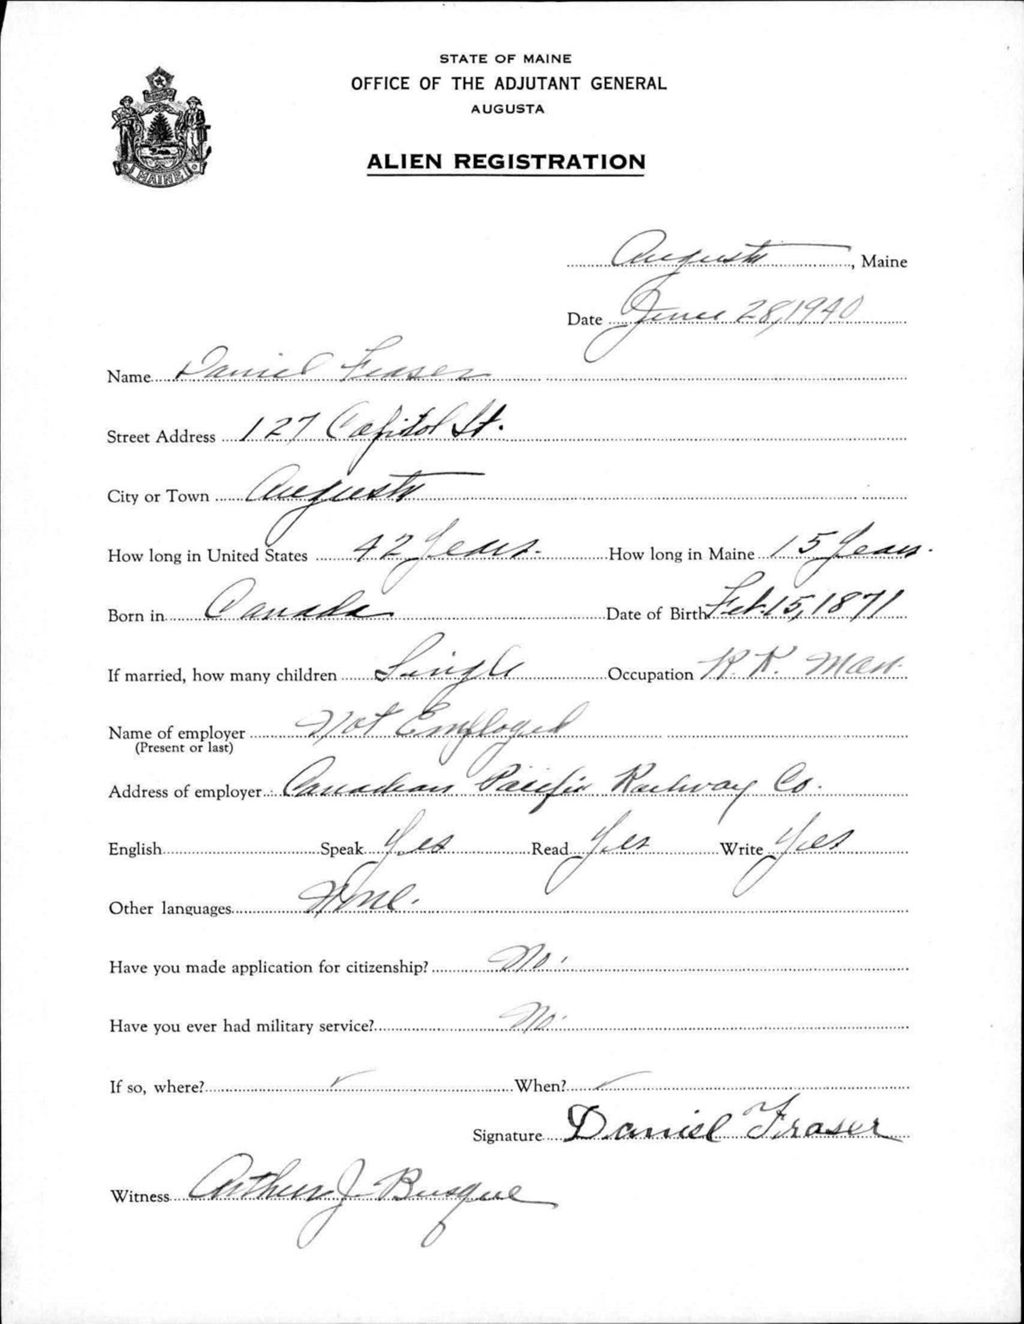 STATE OF MAINE
OFFICE OF THE ADJUTANT GENERAL
AUGUSTA
ALIEN REGISTRATION
MAINE
Augusta, Maine
Date June 28, 1940
Name Daniel Fraser
Street Address 127 Capitol St.
City or Town Augusta
How long in United States 42 Years. How long in Maine 15 Years.
Born in Canada Date of Birth Feb. 15, 1871
If married, how many children Single Occupation R. R. Man.
Name of employer Not Employed
(Present or last)
Address of employer Canadian Pacific Railway Co.
English Speak Yes Read Yes Write Yes
Other languages None.
Have you made application for citizenship? No.
Have you ever had military service? No.
If so, where? ✓ When? ✓
Signature Daniel Fraser
Witness Arthur J. Busque